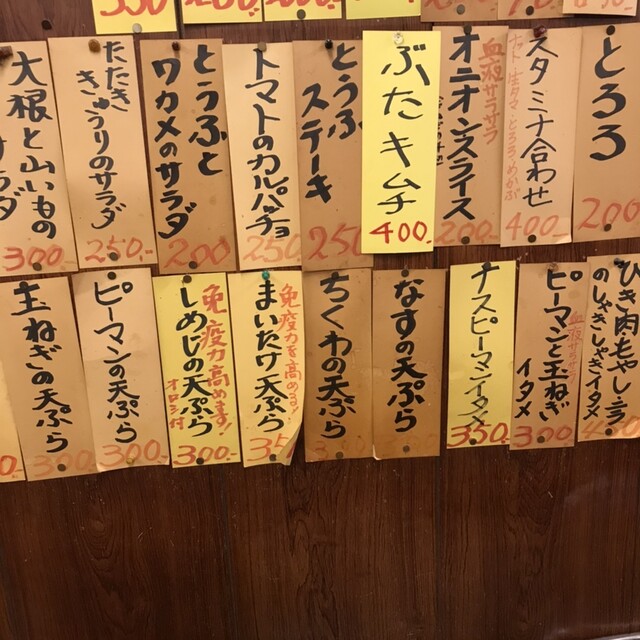 とろろ
200
スタミナ合わせ
400
オニオンスライス
血液サラサラ
200
ぶたキムチ
400-
とうふ
ステーキ
250
トマトのカルパッチョ
250
とうふと
ワカメのサラダ
200
たたき
きゅうりのサラダ
250-
大根と山いもの
サラダ
300
ひき肉もやしニラ
のしゃきしゃきイタメ
ピーマンと玉ねぎ
イタメ
300
ナスピーマンイタメ
350
なすの天ぷら
ちくわの天ぷら
まいたけ天ぷら
免疫力を高めます!
350
しめじの天ぷら
オロシ付
免疫力高めます!
300-
ピーマンの天ぷら
300-
玉ねぎの天ぷら
300